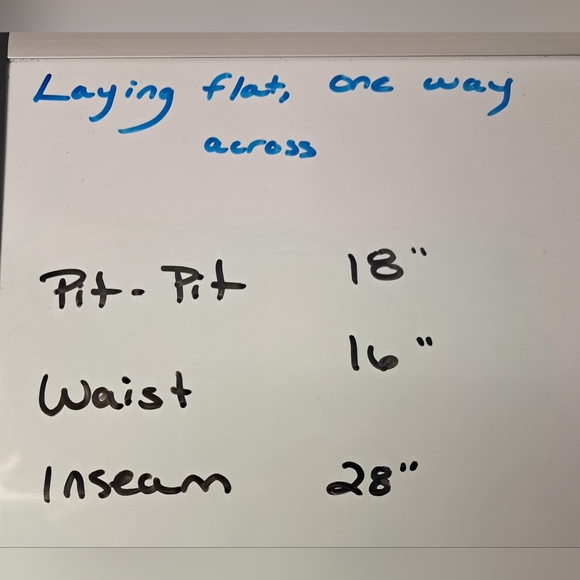 Laying flat, one way
across
Pit-Pit 18"
Waist 16"
Inseam 28"